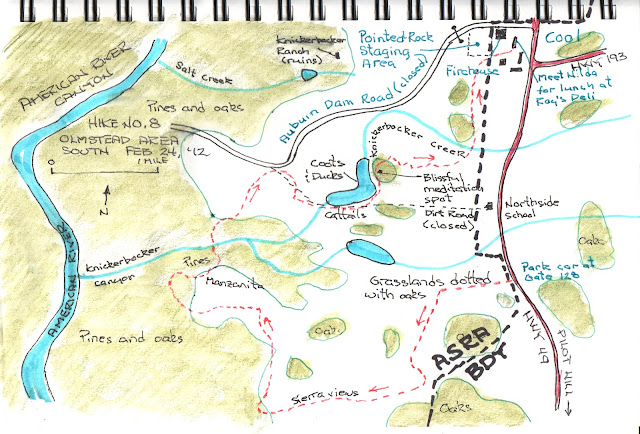 AMERICAN RIVER
CANYON
Salt Creek
Knickerbocker
Ranch
(ruins)
Pointed Rock
Staging
Area
Firehouse
Cool
HWY 193
Meet Nilda
for lunch at
Fay's Deli
Auburn Dam Road (closed)
Pines and oaks
HIKE NO. 8
OLMSTEAD AREA
SOUTH FEB 24, '12
0
1 MILE
N
Knickerbocker Creek
Coots
Ducks
Cattails
Blissful
meditation
spot
Dirt Road
(closed)
Northside
School
Oaks
Knickerbocker
canyon
Pines
Manzanita
Grasslands dotted
with oaks
Park car at
Gate 128
AMERICAN RIVER
Pines and oaks
Oaks
Sierra views
ASRA
BDY
Oaks
HWY 49
PILOT HILL